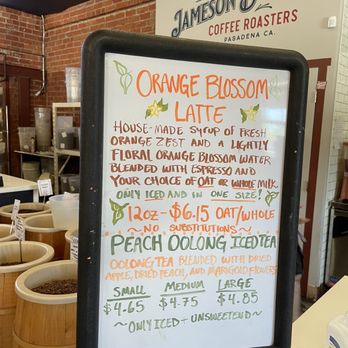 JAMESON B
COFFEE ROASTERS
PASADENA CA.
ORANGE BLOSSOM
LATTE
HOUSE-MADE SYRUP OF FRESH
ORANGE ZEST AND A LIGHTLY
FLORAL ORANGE BLOSSOM WATER
BLENDED WITH ESPRESSO AND
YOUR CHOICE OF OAT OR WHOLE MILK
ONLY ICED AND IN ONE SIZE!
12oz - $6.15 OAT/WHOLE
~ NO SUBSTITUTIONS ~
PEACH OOLONG ICED TEA
OOLONG TEA BLENDED WITH DRIED
APPLE, DRIED PEACH, AND MARIGOLD FLOWERS
SMALL MEDIUM LARGE
$4.65 $4.75 $4.85
~ ONLY ICED + UNSWEETEND ~